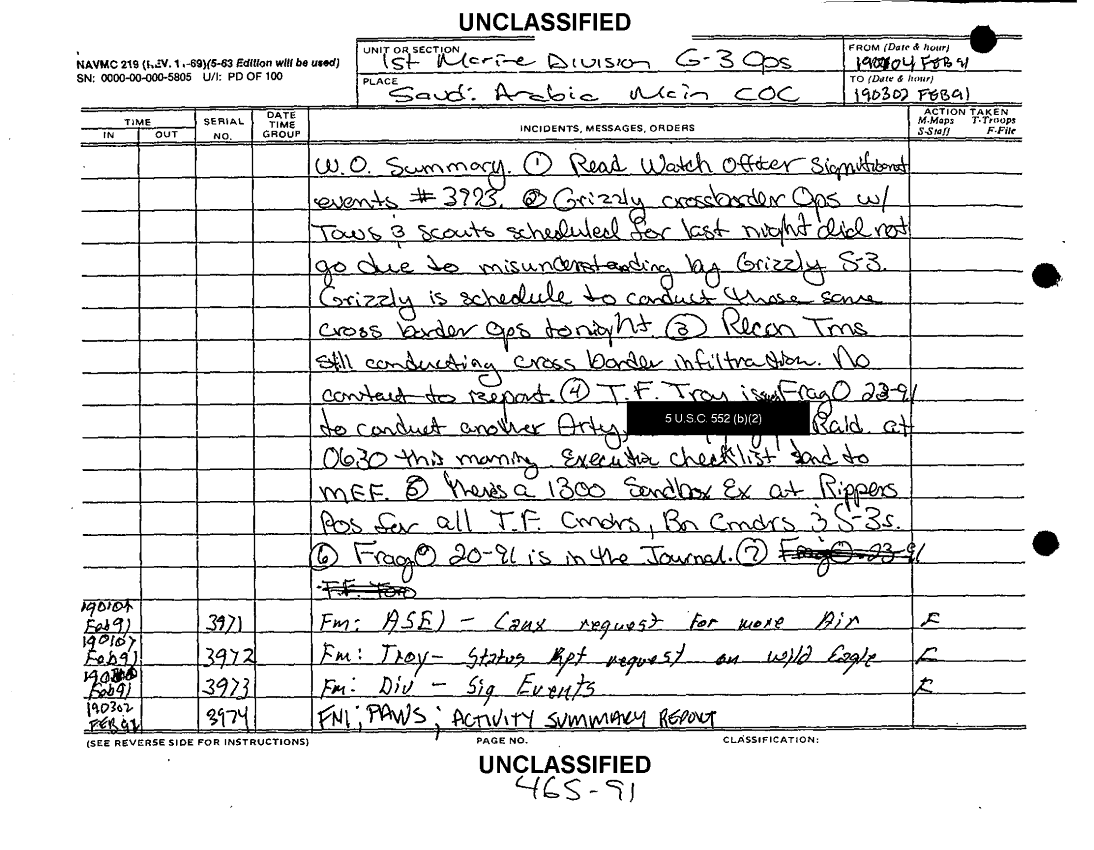 UNCLASSIFIED
NAVMC 219 (REV. 11-69)(5-63 Edition will be used)
SN: 0000-00-000-5805 U/I: PD OF 100
UNIT OR SECTION
1st Marine Division G-3 Ops
FROM (Date & hour)
190104 FEB 91
PLACE
Saudi Arabia Main COC
TO (Date & hour)
190302 FEB91
TIME
IN OUT
SERIAL NO.
DATE TIME GROUP
INCIDENTS, MESSAGES, ORDERS
ACTION TAKEN
M-Maps T-Troops
S-Staff F-File
W.O. Summary. ① Read Watch Officer Significant
events # 3973. ② Grizzly crossborder Ops w/
Tows & scouts scheduled for last night did not
go due to misunderstanding by Grizzly S-3.
Grizzly is schedule to conduct those same
cross border ops tonight. ③ Recon Tms
still conducting cross border infiltration. No
contact to report. ④ T.F. Troy FragO 23-91
5 U.S.C. 552 (b)(2)
to conduct another Arty, Raid at
0630 this morning Execution checklist send to
MEF. ⑤ there's a 1300 Sandbox Ex at Rippers
Pos for all T.F. Cmdrs, Bn Cmdrs & S-3s.
⑥ FragO 20-91 is in the Journal. ⑦ FragO 23-91
T.F.
Feb91 3971 Fm: ASE) - request for more Air F
190107
Feb91 3972 Fm: Troy - Status Rpt request on Wild Eagle F
Feb91 3973 Fm: Div - Sig Events F
190302
FEB91 3974 FM: PAWS; ACTIVITY SUMMARY REPORT
(SEE REVERSE SIDE FOR INSTRUCTIONS) PAGE NO. CLASSIFICATION:
UNCLASSIFIED
465-91